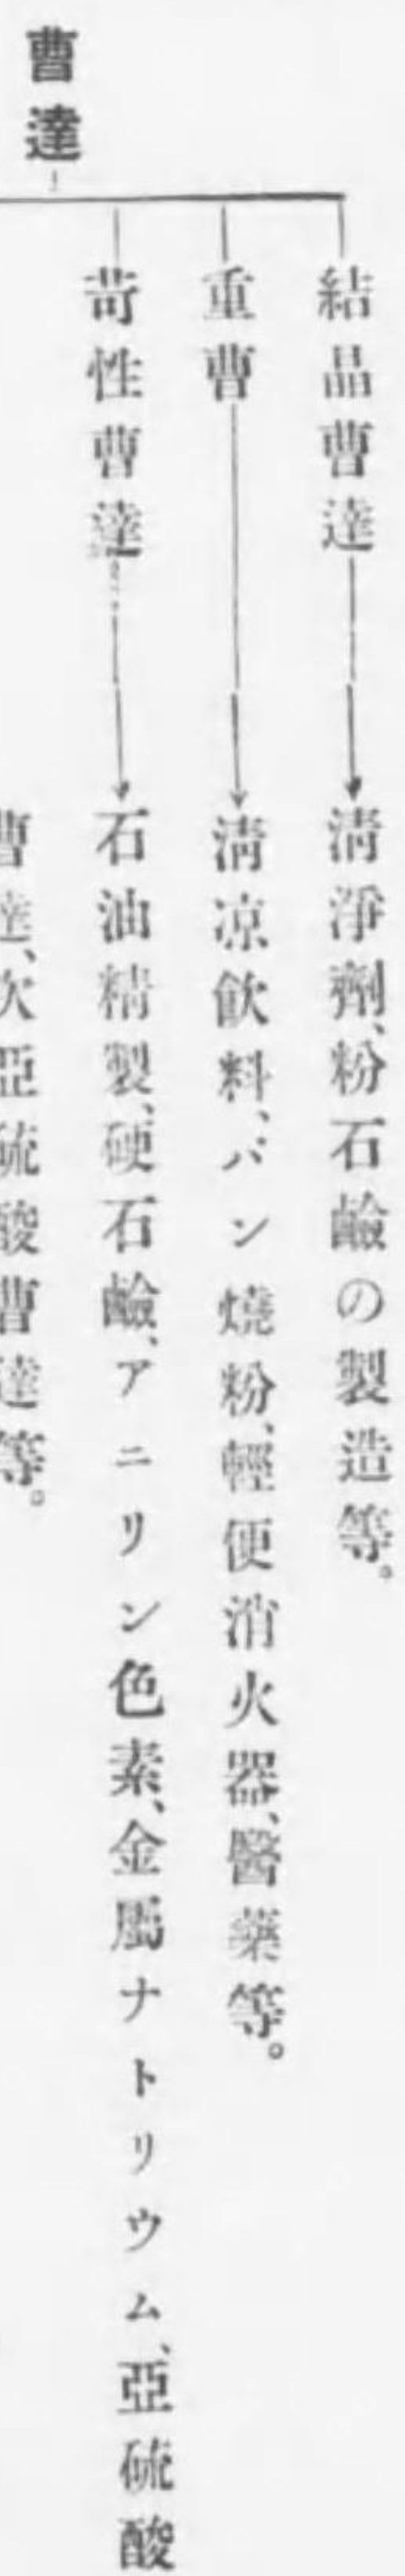 曹達
結晶曹達 淸淨劑、粉石鹼の製造等。
重曹 淸凉飮料、パン燒粉、輕便消火器、醫藥等。
苛性曹達 石油精製、硬石鹼、アニリン色素、金屬ナトリウム、亞硫酸
曹達、次亞硫酸曹達等。